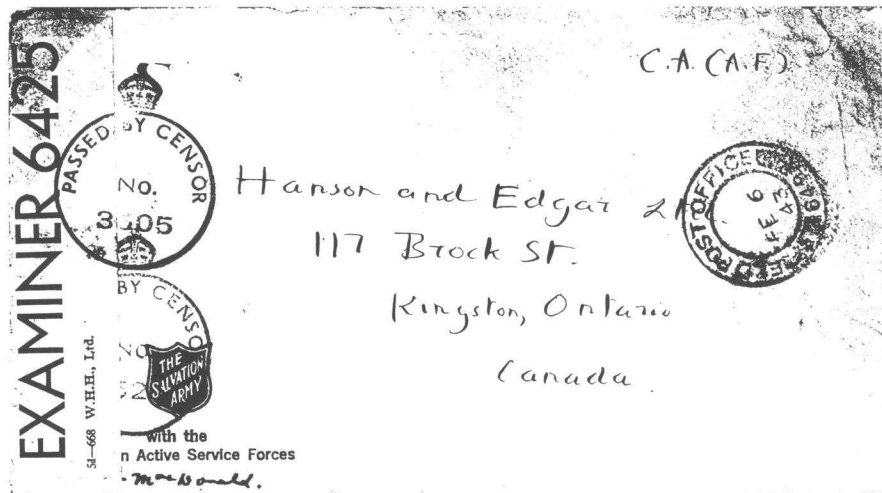 EXAMINER 6425
5d—668 W.H.H., Ltd.
PASSED BY CENSOR
No.
3 05
BY CENSO
No
52
THE
SALVATION
ARMY
with the
n Active Service Forces
MacDonald.
C.A. (A.F.)
Hanson and Edgar
117 Brock St.
Kingston, Ontario
Canada.
FIELD POST OFFICE
FE 6
43